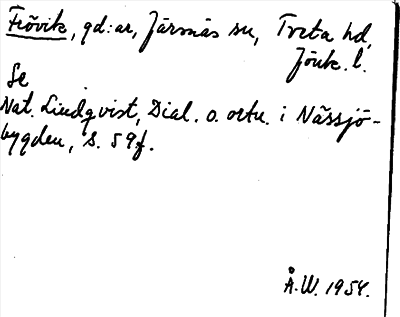 Fiövik, gd:ar, Järsnäs sn, Tveta hd,
Jönk. l.
Se
Nat. Lindqvist, Dial. o. ortn. i Nässjö-
bygden, s. 59f.
Å.W. 1954.